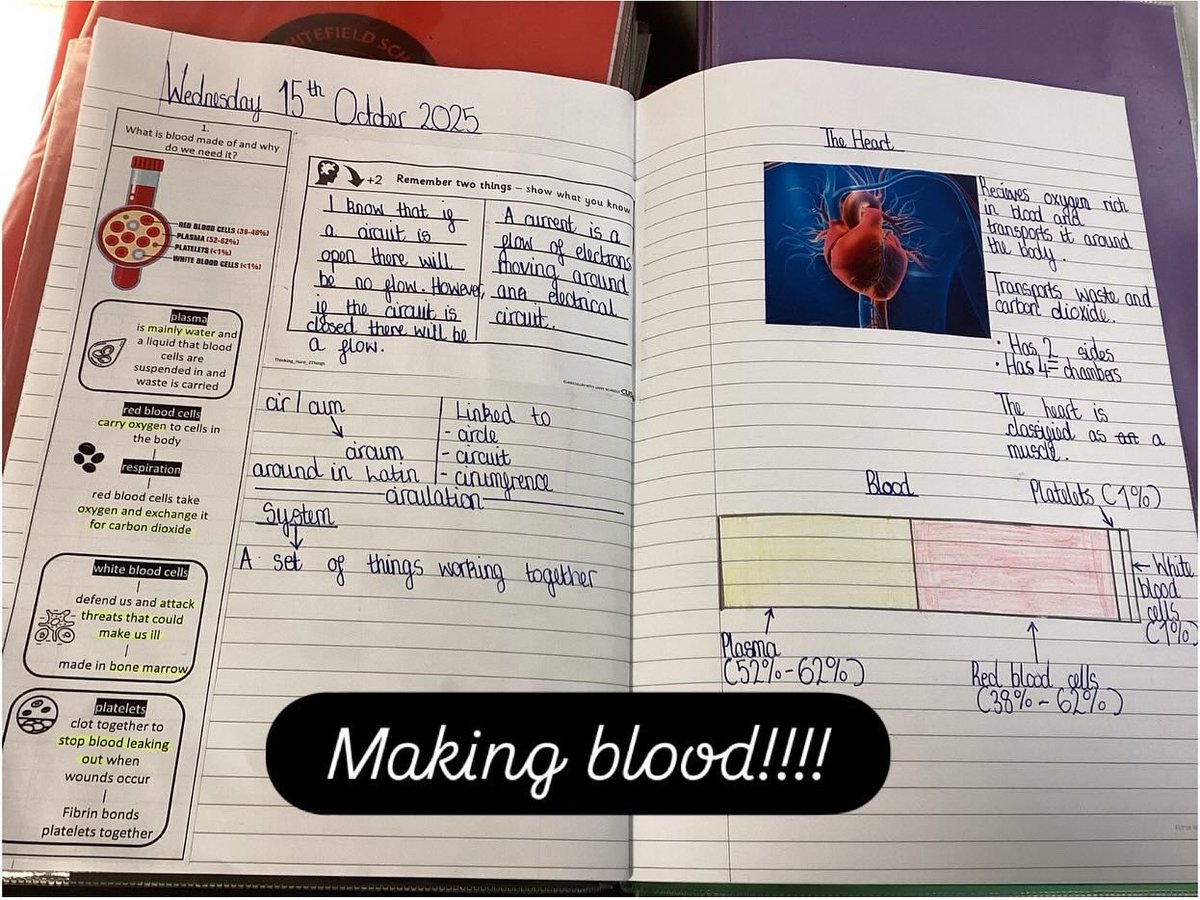 WHITEFIELD SCH
Wednesday 15th October 2025
1.
What is blood made of and why
do we need it?
RED BLOOD CELLS (38-48%)
PLASMA (52-62%)
PLATELETS (<1%)
WHITE BLOOD CELLS (<1%)
plasma
is mainly water and
a liquid that blood
cells are
suspended in and
waste is carried
red blood cells
carry oxygen to cells in
the body
respiration
red blood cells take
oxygen and exchange it
for carbon dioxide
white blood cells
defend us and attack
threats that could
make us ill
made in bone marrow
platelets
clot together to
stop blood leaking
out when
wounds occur
Fibrin bonds
platelets together
+2 Remember two things – show what you know
I know that if
a circuit is
open there will
be no flow. However,
if the circuit is
closed there will be
a flow.
A current is a
flow of electrons
moving around
ane electrical
circuit.
Thinking_Hard_2Things
cir / cum
circum
around in Latin
Linked to
- circle
- circuit
- cirumfrence
circulation
System
A set of things working together
The Heart
Recieves oxygen rich
in blood and
transports it around
the body.
Transports waste and
carbon dioxide.
• Has 2 sides
• Has 4 chambers
The heart is
classified as a
muscle.
Blood
Platelets (1%)
White
blood
cells
(1%)
Plasma
(52%-62%)
Red blood cells
(38%-62%)
Making blood!!!!